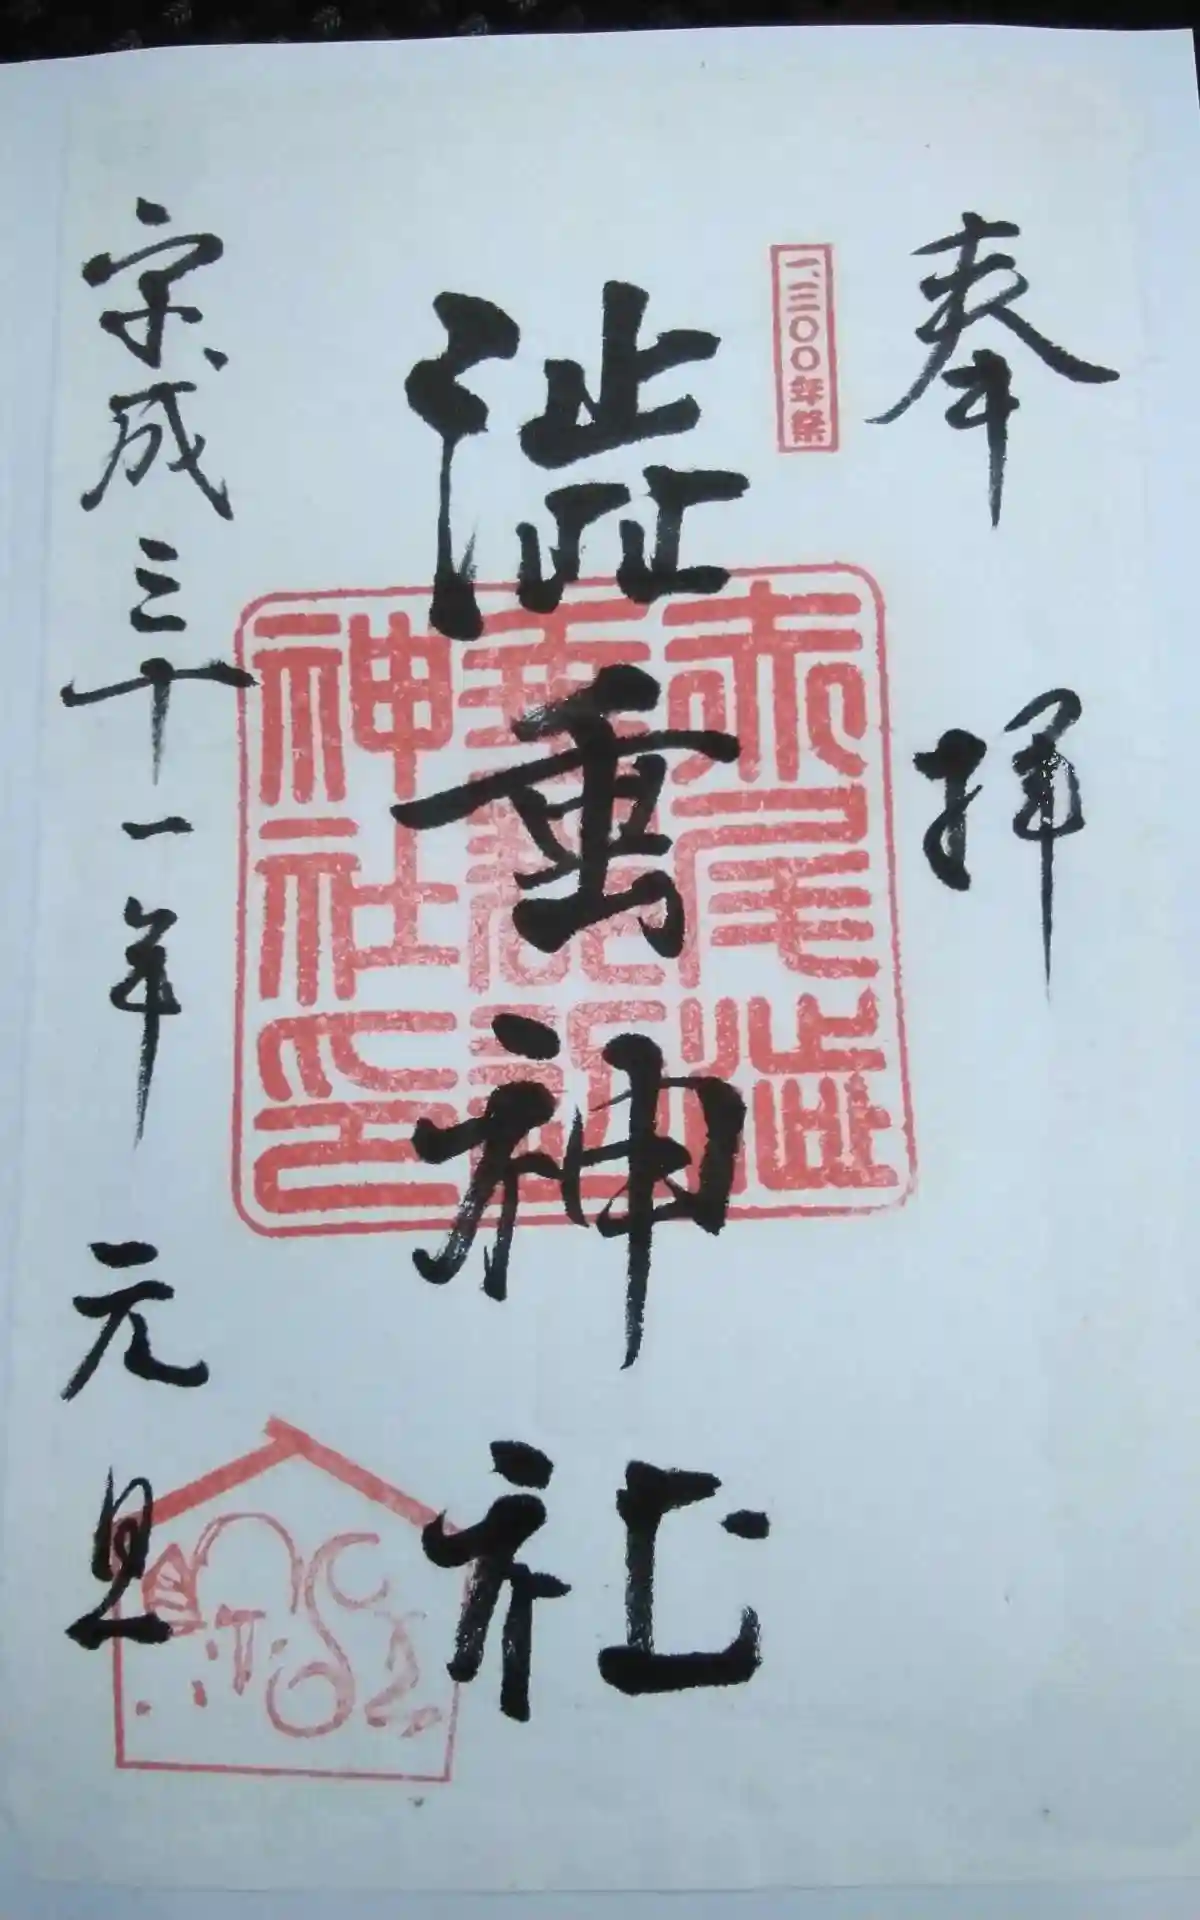 奉拝
一、三〇〇年祭
澁垂神社
赤尾澁
神社印
平成三十一年 元旦